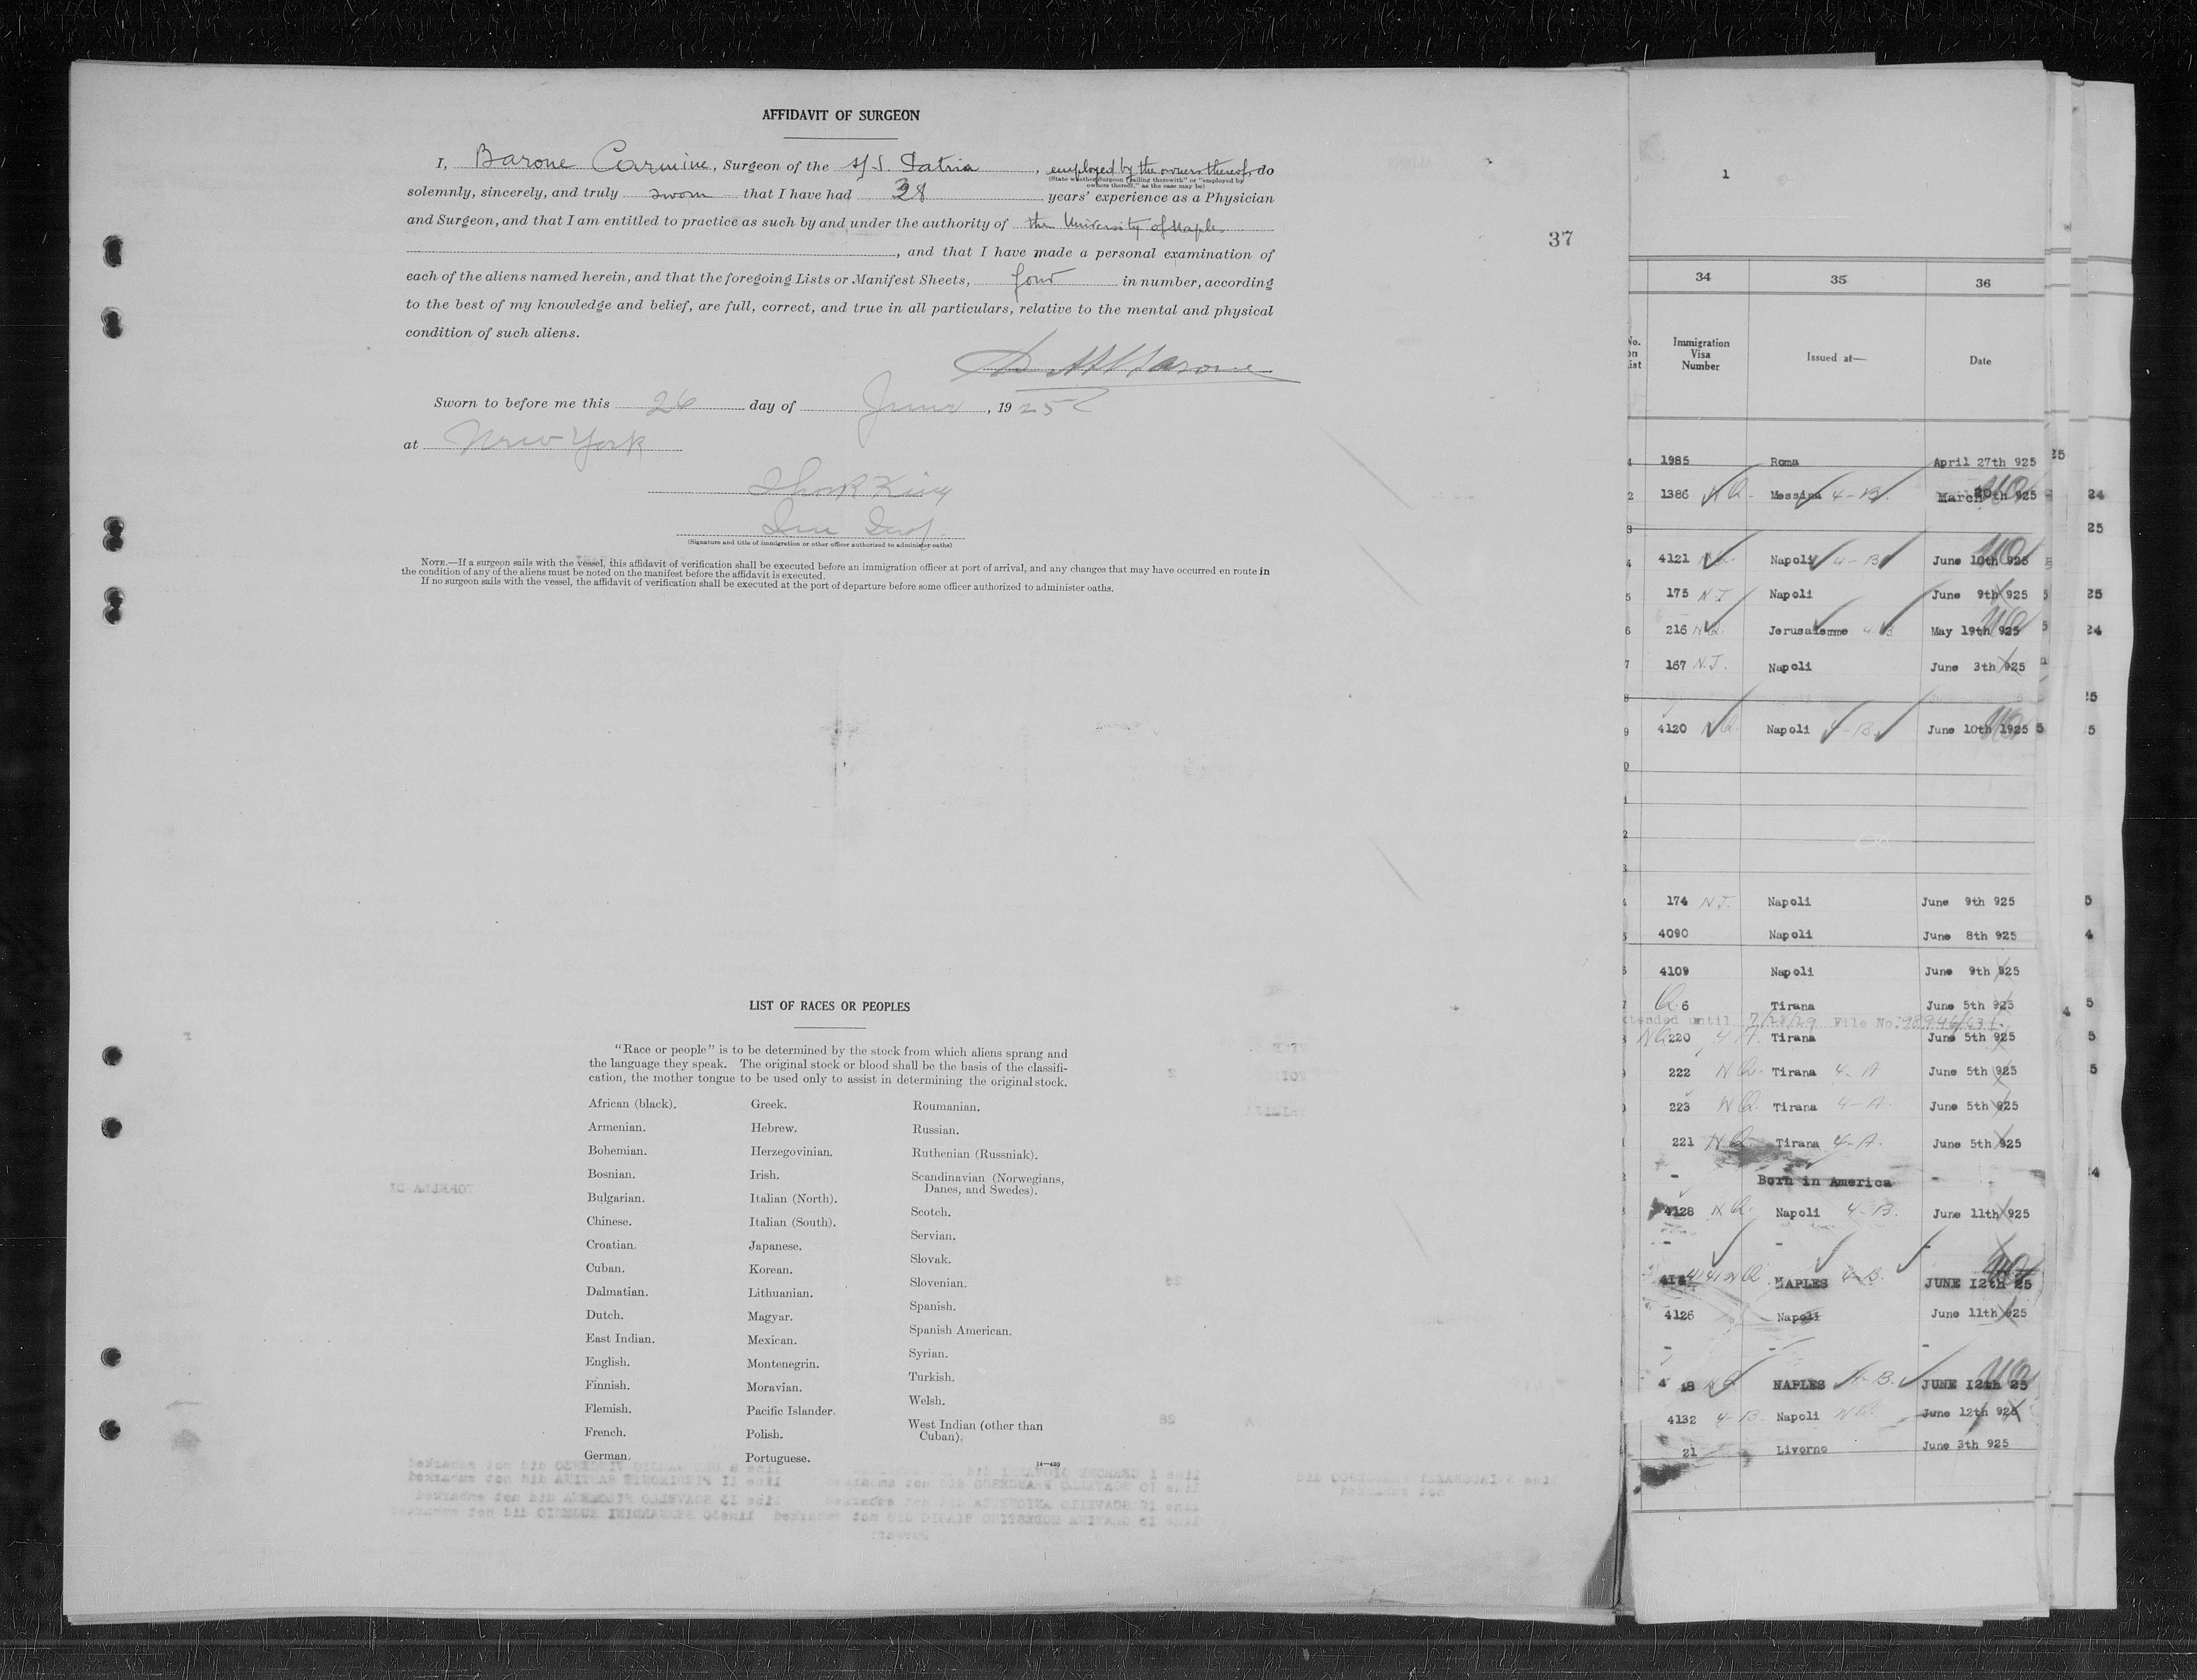 AFFIDAVIT OF SURGEON
I, Barone Carmine, Surgeon of the s/s. Patria, employed by the owners thereof, do
(State whether Surgeon "sailing therewith" or "employed by owners thereof," as the case may be)
solemnly, sincerely, and truly sworn that I have had 38 years' experience as a Physician
and Surgeon, and that I am entitled to practice as such by and under the authority of the University of Naples
, and that I have made a personal examination of
each of the aliens named herein, and that the foregoing Lists or Manifest Sheets, four in number, according
to the best of my knowledge and belief, are full, correct, and true in all particulars, relative to the mental and physical
condition of such aliens.
Barone
Sworn to before me this 26 day of June, 1925
at New York
King
(Signature and title of immigration or other officer authorized to administer oaths)
NOTE.—If a surgeon sails with the vessel, this affidavit of verification shall be executed before an immigration officer at port of arrival, and any changes that may have occurred en route in
the condition of any of the aliens must be noted on the manifest before the affidavit is executed.
If no surgeon sails with the vessel, the affidavit of verification shall be executed at the port of departure before some officer authorized to administer oaths.
37
LIST OF RACES OR PEOPLES
"Race or people" is to be determined by the stock from which aliens sprang and
the language they speak. The original stock or blood shall be the basis of the classifi-
cation, the mother tongue to be used only to assist in determining the original stock.
African (black).
Armenian.
Bohemian.
Bosnian.
Bulgarian.
Chinese.
Croatian.
Cuban.
Dalmatian.
Dutch.
East Indian.
English.
Finnish.
Flemish.
French.
German.
Greek.
Hebrew.
Herzegovinian.
Irish.
Italian (North).
Italian (South).
Japanese.
Korean.
Lithuanian.
Magyar.
Mexican.
Montenegrin.
Moravian.
Pacific Islander.
Polish.
Portuguese.
Roumanian.
Russian.
Ruthenian (Russniak).
Scandinavian (Norwegians,
Danes, and Swedes).
Scotch.
Servian.
Slovak.
Slovenian.
Spanish.
Spanish American.
Syrian.
Turkish.
Welsh.
West Indian (other than
Cuban).
14—430
1
34 35 36
Immigration
Visa
Number
Issued at—
Date
1985 Roma April 27th 925
1386 N Q. Messina 4-B. March 20th 925
4121 N Q. Napoli 4-B June 10th 925
175 N J Napoli June 9th 925
216 N Q. Jerusalemme 4 B May 19th 925
167 N.J. Napoli June 3th 925
4120 N Q. Napoli 4-B. June 10th 1925
174 N J. Napoli June 9th 925
4090 Napoli June 8th 925
4109 Napoli June 9th 925
Q. 6 Tirana June 5th 925
xtended until 7/28/29 File No.
NQ 220 4 A. Tirana June 5th 925
222 N Q. Tirana 4-A June 5th 925
223 N Q. Tirana 4-A. June 5th 925
221 N Q. Tirana 4-A. June 5th 925
- Born in America -
4128 N Q. Napoli 4-B. June 11th 925
- -
4141 N Q NAPLES 4-B. JUNE 12th 25
4126 Napoli June 11th 925
- - -
NAPLES 4-B. JUNE 12th 25
4132 4-B. Napoli N Q. June 12th 925
21 Livorno June 3th 925